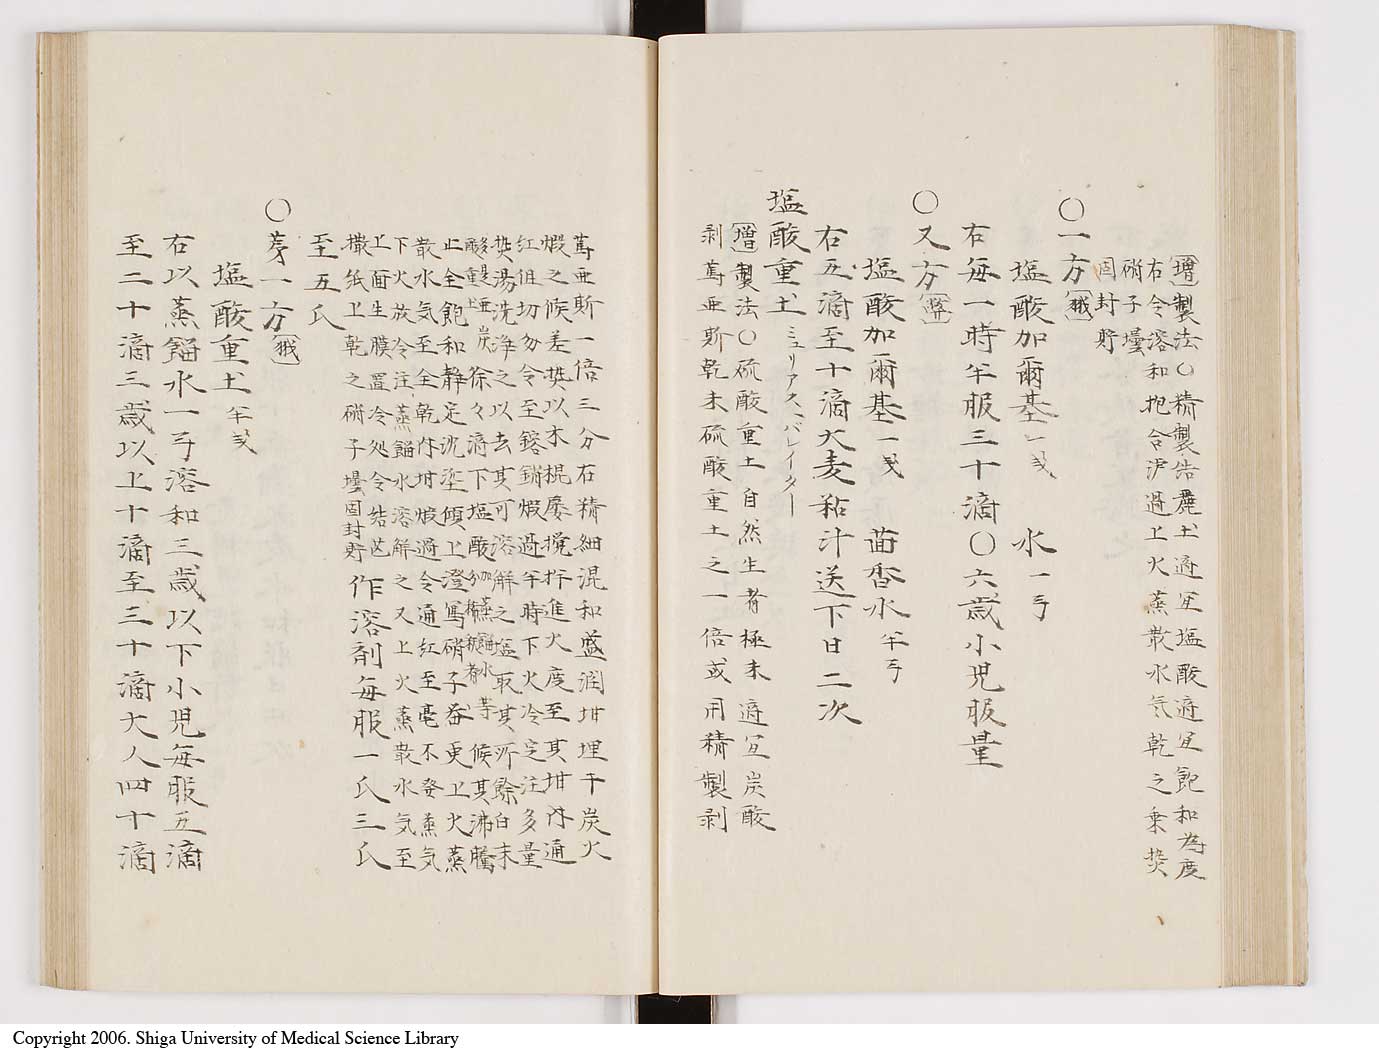 増製法〇精製告麗土適宜塩酸適宜飽和為度
右令溶和抱合沪過上火蒸散水気乾之乗熱
硝子壜
固封貯
〇一方
塩酸加爾基一戔 水一丂
右毎一時半服三十滴〇六歳小児服量
〇又方
塩酸加爾基一戔 茴香水半丂
右五滴至十滴大麦粘汁送下日二次
塩酸重土ミュリアス、バレイター
増製法〇硫酸重土自然生者極末適宜炭酸
剥篤亜斯乾末硫酸重土之一倍或用精製剥
篤亜斯一倍三分右精細混和盛潤坩埋干炭火
煆之候差熱以木棍屡攪拌進火度至其坩内通
紅但切勿令至鎔銷煆過半時下火冷定注多量
熱湯洗浄之以去其可溶解之塩取其所餘白末
酸重土炭徐々滴下塩酸加蒸餾水等分稀釈者候其沸騰
止全飽和静定沈垽傾上澄瀉硝子盃更上火蒸
散水気至全乾内坩煆過令通紅至毫不発蒸気
下火放冷注蒸餾水溶解之又上火蒸散水気至
上面生膜置冷処令結芒
撒紙上乾之硝子壜固封貯 作溶剤毎服一氏三氏
至五氏
〇第一方
塩酸重土半戔
右以蒸餾水一丂溶和三歳以下小児毎服五滴
至二十滴三歳以上十滴至三十滴大人四十滴
Copyright 2006. Shiga University of Medical Science Library